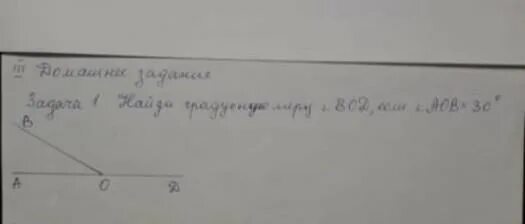 III Домашнее задание
Задача 1 Найди градусную меру ∠BOD, если ∠AOB = 30°
B
A O D